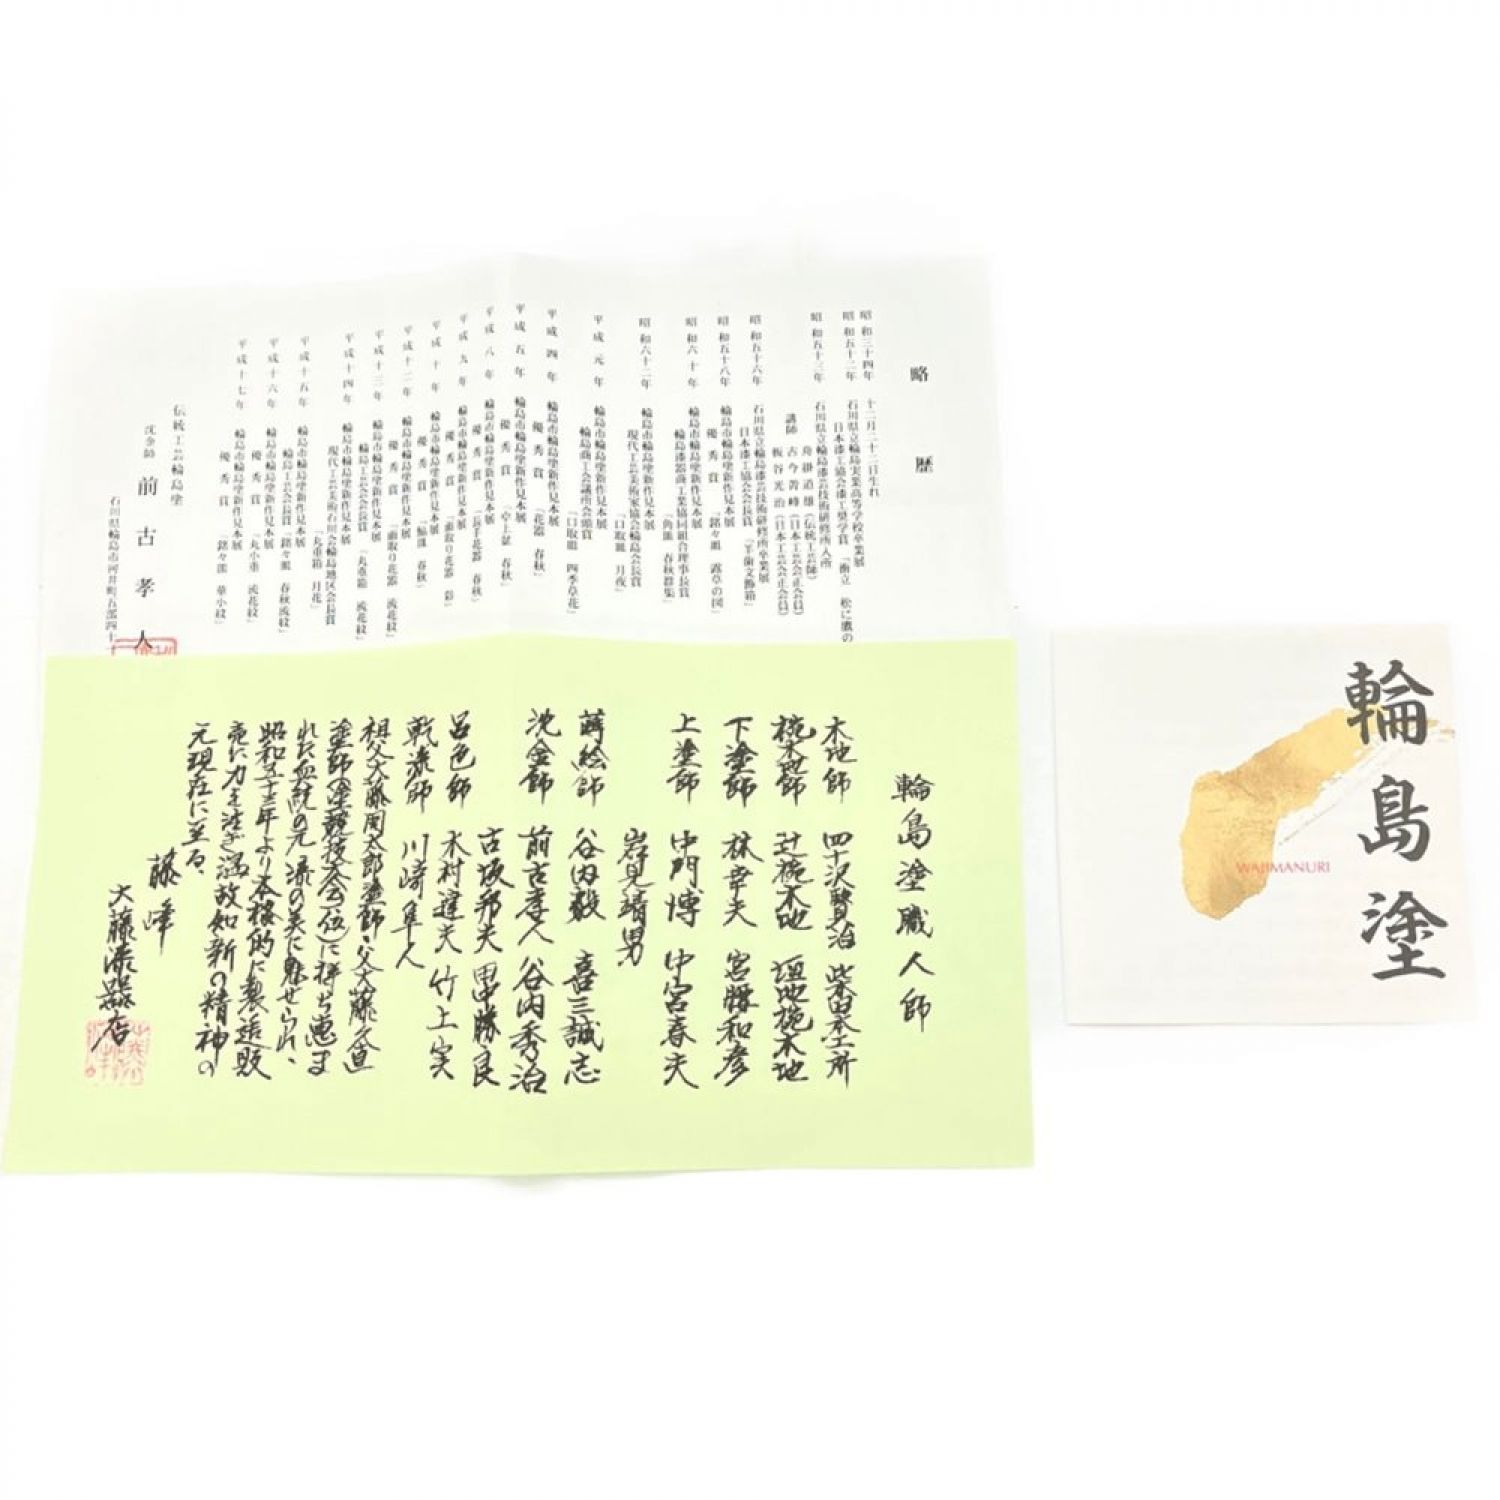 略歴
昭和三十四年 十二月二十二日生れ
昭和五十二年 石川県立輪島実業高等学校卒業展
日本漆工協会漆工奨学賞 「衝立 松に鷹の
昭和五十三年 石川県立輪島漆芸技術研修所入所
講師 舟掛道雄(伝統工芸師)
古今菁峰(日本工芸会正会員)
板谷光治(日本工芸会正会員)
昭和五十六年 石川県立輪島漆芸技術研修所卒業展
日本漆工協会会長賞
昭和五十八年 輪島市輪島塗新作見本展
優秀賞 「銘々皿 露草の図」
昭和六十年 輪島市輪島塗新作見本展
輪島漆器商工業協同組合理事長賞
昭和六十二年 輪島市輪島塗新作見本展
現代工芸美術家協会輪島会長賞
「口取皿 月夜」
平成元年 輪島市輪島塗新作見本展
輪島商工会議所会頭賞
「口取皿 四季草花」
平成四年 輪島市輪島塗新作見本展
優秀賞 「花器 春秋」
平成五年 輪島市輪島塗新作見本展
優秀賞 「卓上盆 春秋」
平成八年 輪島市輪島塗新作見本展
優秀賞 「長手花器 春秋」
平成九年 輪島市輪島塗新作見本展
優秀賞 「面取り花器 彩」
平成十年 輪島市輪島塗新作見本展
優秀賞
平成十二年 輪島市輪島塗新作見本展
優秀賞 「面取り花器 流花紋」
平成十三年 輪島市輪島塗新作見本展
輪島工芸会会長賞 「丸重箱 流花紋」
平成十四年 輪島市輪島塗新作見本展
現代工芸美術石川会輪島地区会長賞
「丸重箱 月花」
平成十五年 輪島市輪島塗新作見本展
輪島工芸会会長賞 「銘々皿 春秋流紋」
平成十六年 輪島市輪島塗新作見本展
優秀賞 「丸小重 流花紋」
平成十七年 輪島市輪島塗新作見本展
優秀賞 「銘々皿 華小紋」
伝統工芸輪島塗
沈金師 前古孝人
石川県輪島市河井町五部四十
輪島塗職人師
木地師 四十沢賢治 柴田木工所
椀木地師 辻椀木地 垣地椀木地
下塗師 林幸夫 宮腰和彦
上塗師 中門博 中宮春夫
岩見靖男
蒔絵師 谷内毅 喜三誠志
沈金師 前古孝人 谷内秀治
古坂邦夫 田中勝良
呂色師 木村建夫 竹上実
乾漆師 川崎隼人
祖父大藤関太郎塗師、父大藤久直
塗師の塗競技大会一位に持ち恵ま
れた血統の元、漆の美に魅せられ、
昭和五十三年より本格的に製造販
売に力を注ぎ温故知新の精神の
元現在に至る。
藤峰
大藤漆器店
輪島塗
WAJIMANURI